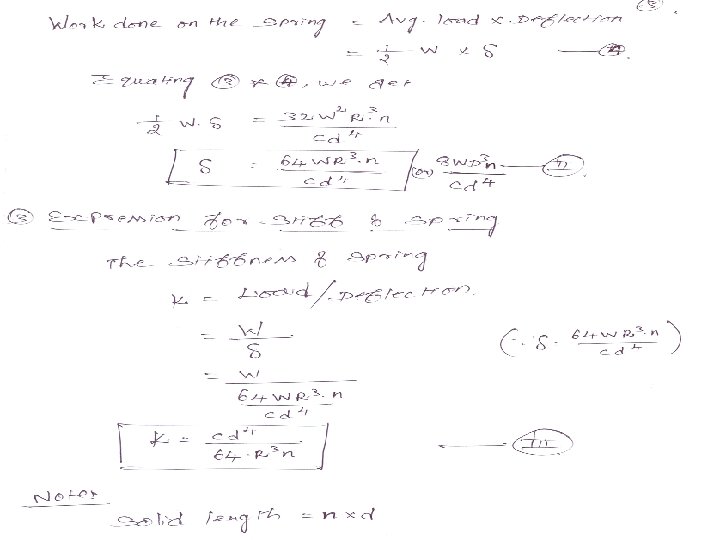 (3).
Work done on the spring = Avg. load x Deflection
= 1/2 W x δ —— (4).
Equating (3) & (4), we get
1/2 W.δ = 32W²R³n / cd⁴
δ = 64WR³.n / cd⁴ (or) 8WD³n / cd⁴ —— (II).
(3) Expression for stiff of spring
The stiffness of spring
k = Load/Deflection.
= W / δ (∵ δ = 64WR³.n / cd⁴)
= W / (64WR³.n / cd⁴)
k = cd⁴ / 64.R³n —— (III)
Note:
solid length = n x d